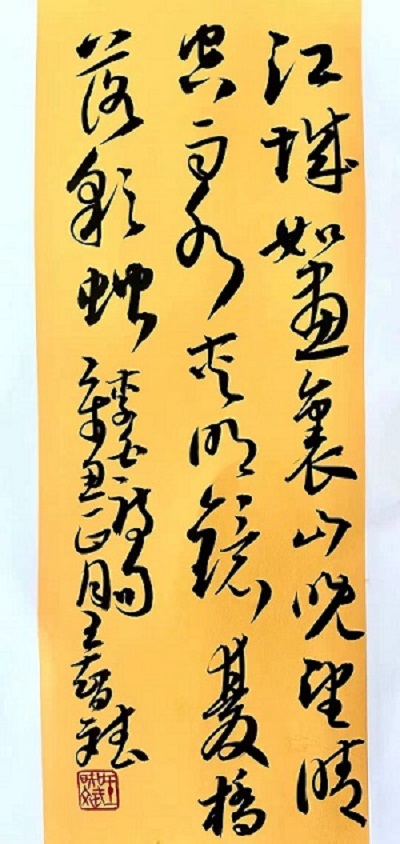 江城如畫裏山晚望晴
空兩水夾明鏡雙橋
落彩虹
李白詩句
辛丑正月王